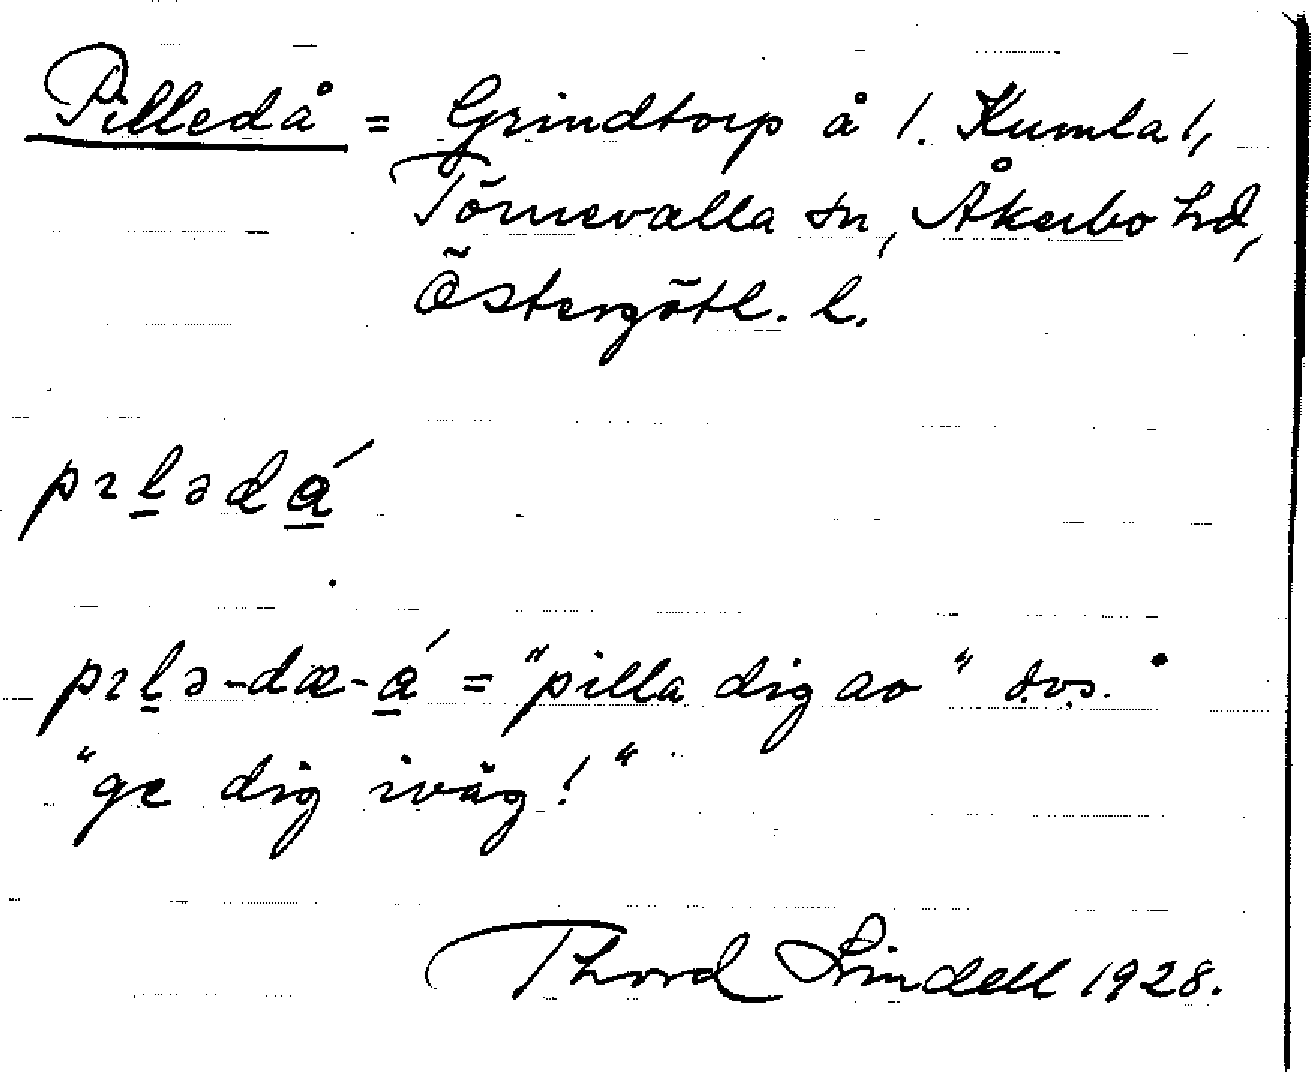 Pilledå = Grindtorp å 1. Kumla 1,
Törnevalla sn, Åkerbo hd,
Östergötl. l.
pɪl̲ədá̲
pɪl̲ə-dæ-á̲ = "pilla dig av" d.v.s.
"ge dig iväg!"
Thord Lindell 1928.